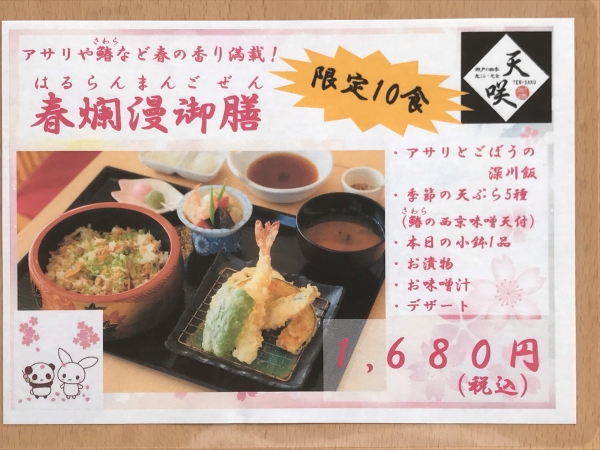 さわら
アサリや鰆など春の香り満載!
はるらんまんごぜん
春爛漫御膳
限定10食
天咲
TEN-SAKU
・アサリとごぼうの
深川飯
・季節の天ぷら5種
さわら
(鰆の西京味噌天付)
・本日の小鉢1品
・お漬物
・お味噌汁
・デザート
1,680円
(税込)